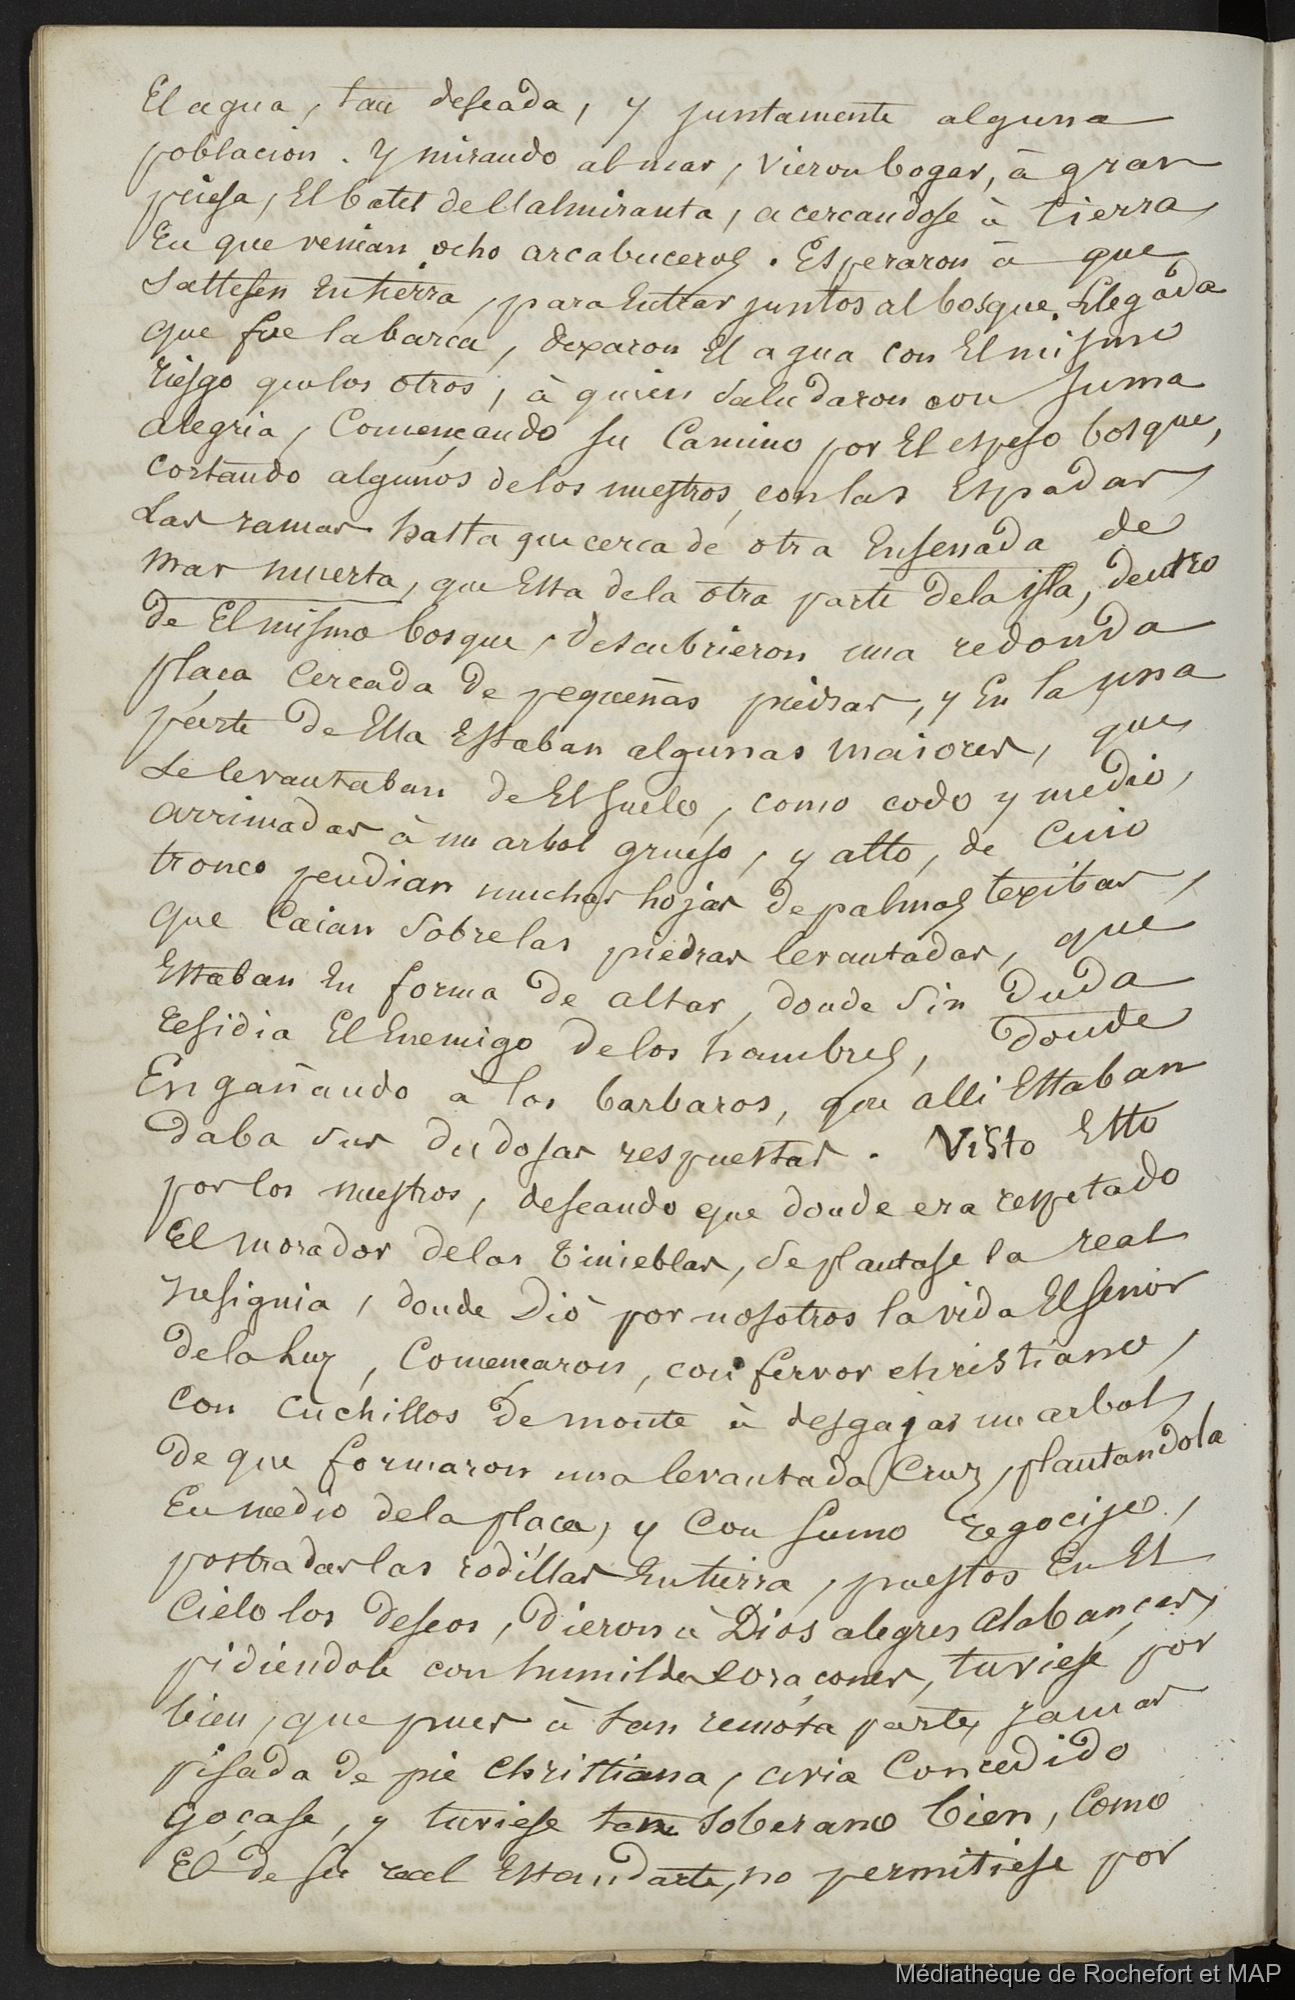 El agua, tan deseada, y juntamente alguna
poblacion. Y mirando al mar, vieron bogar, à gran
priesa, El batel dell almiranta, acercandose à tierra,
En que venian ocho arcabuceros. Esperaron à que
Saltesen En tierra, para Entrar juntos al bosque. Llegada
que fue la barca, dexaron El agua con El mismo
riesgo que los otros, à quien Saludaron con suma
alegria, Començando su Camino por El espeso bosque,
cortando algunos de los nuestros, con las Espadas,
Las ramas hasta que cerca de otra Ensenada de
mar muerta, que Esta de la otra parte de la isla, dentro
de El mismo bosque, descubrieron una redonda
plaça Cercada de pequeñas piedras, y En la una
parte de Ella Estaban algunas maiores, que
se levantaban de El suelo, como codo y medio,
arrimadas à un arbol grueso, y alto, de Cuio
tronco pendian muchas hojas de palmas texidas,
que Caian Sobre las piedras levantadas, que
Estaban En forma de altar, donde Sin duda
residia El Enemigo de los hombres, donde
Engañando à los barbaros, que alli Estaban
daba sus dudosas respuestas. Visto Esto
por los nuestros, deseando que donde era respetado
El morador de las tinieblas, Se plantase la real
Insignia, donde Diò por nosotros la vida El Senior
de la luz, Començaron, con fervor christiano,
con cuchillos de monte à desgajar un arbol,
de que formaron una levantada Cruz, plantandola
En medio de la plaça, y Con Sumo regocijo,
postradas las rodillas En tierra, puestos En El
Cielo los deseos, dieron à Dios alegres alabanças,
pidiendole con humildes coraçones, tuviese por
bien, que pues à tan remota parte, jamas
pisada de pie Christiana, avia Concedido
goçase, y tuviese tan Soberano bien, Como
El de Su real Estandarte, no permitiese por
Médiathèque de Rochefort et MAP